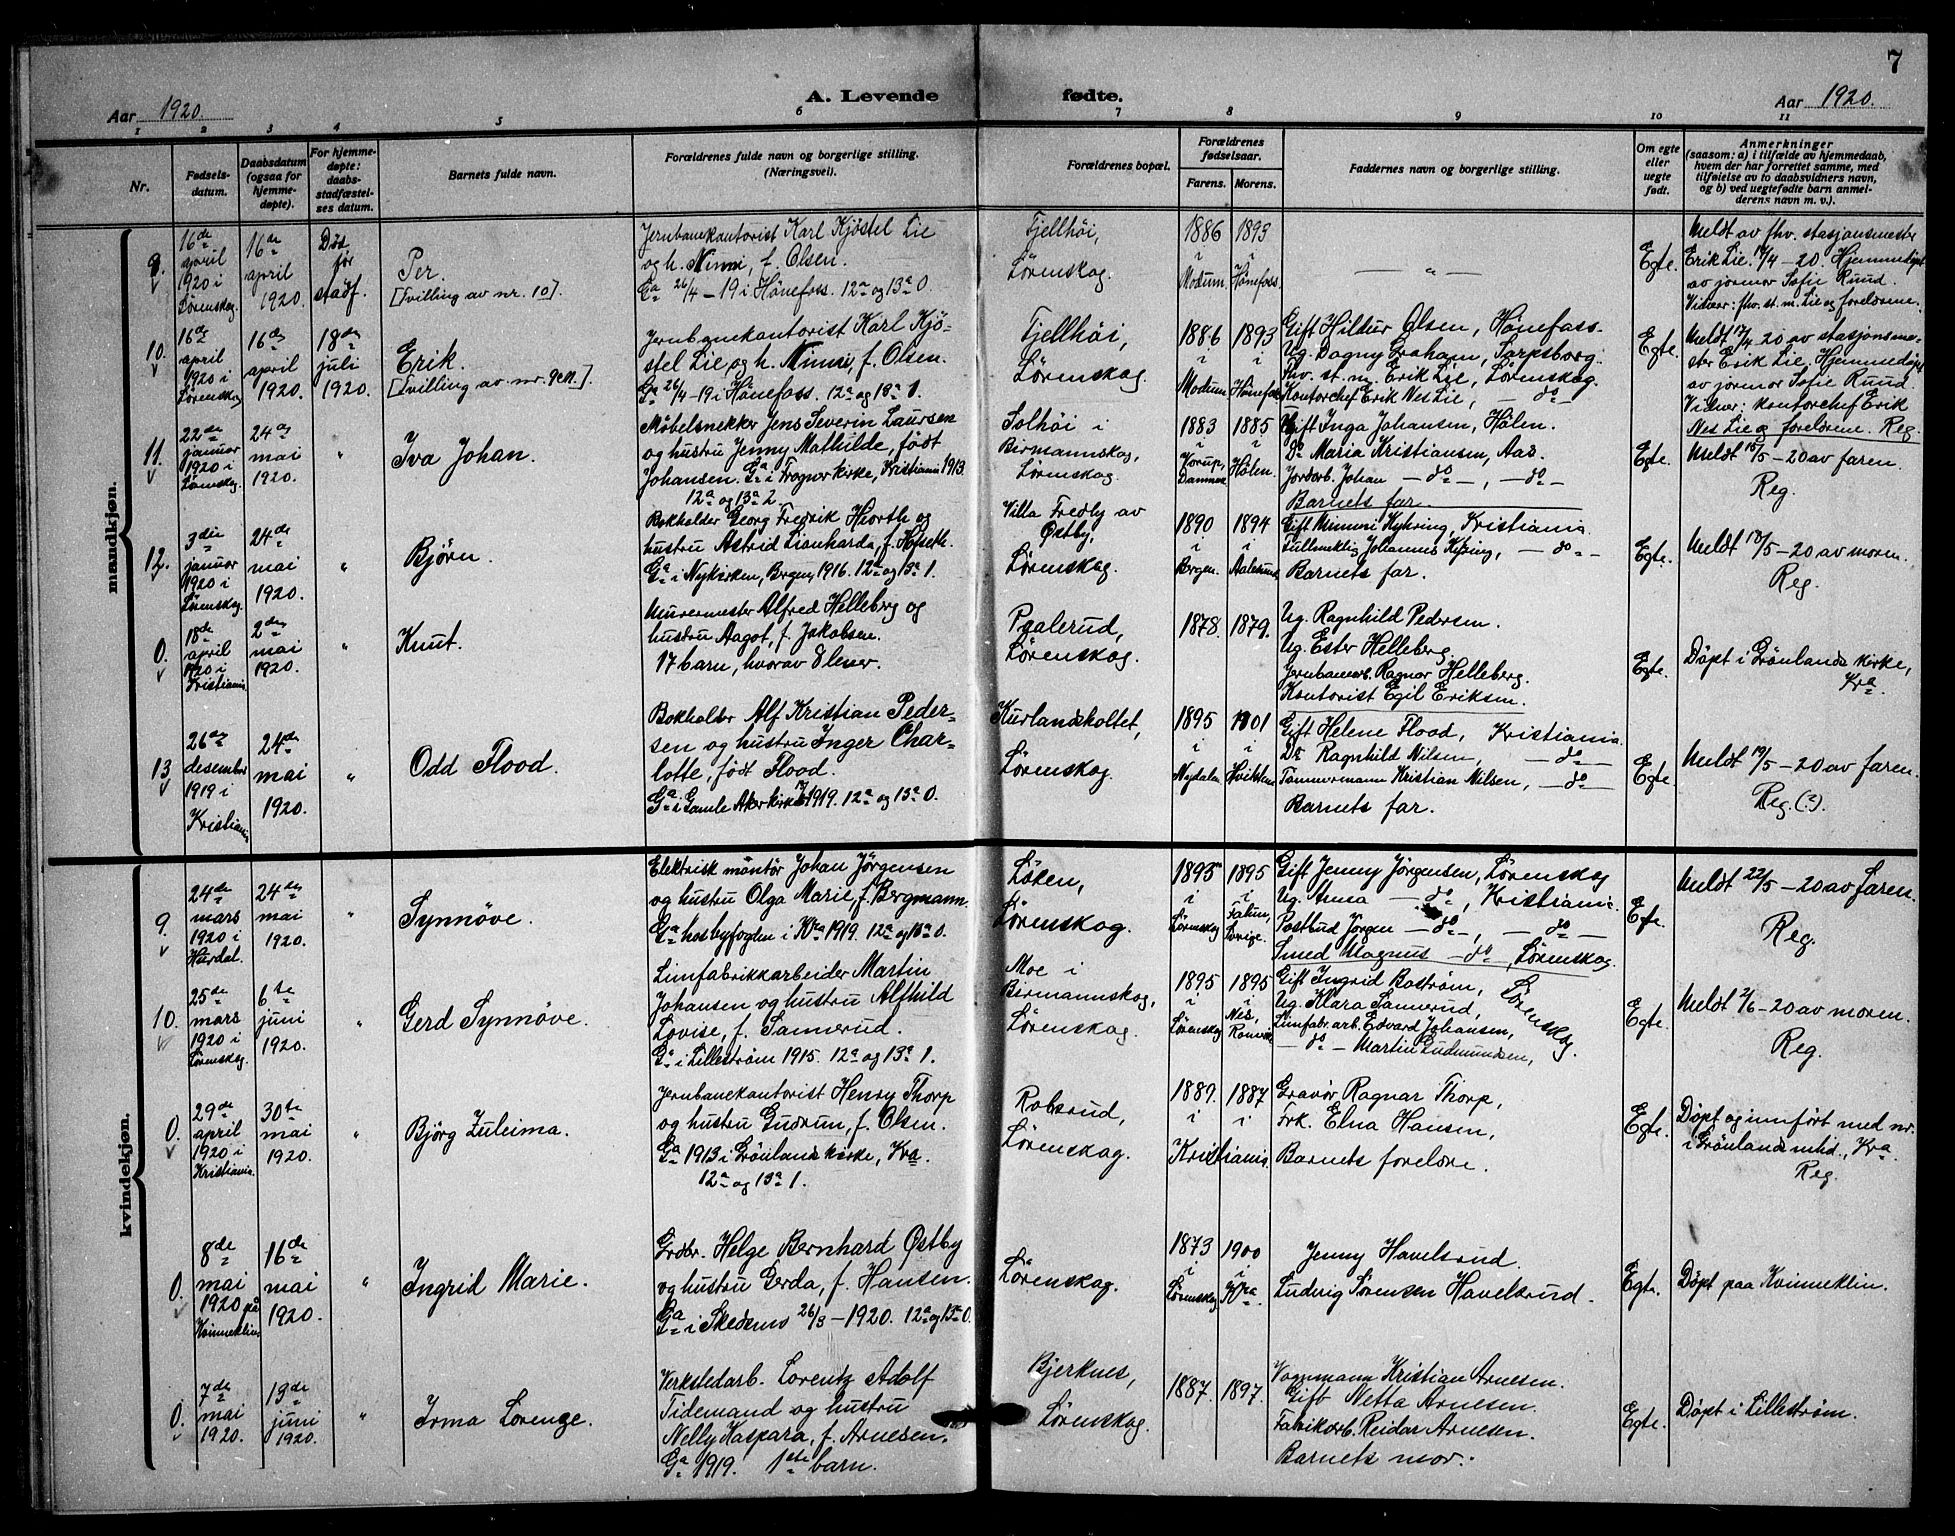 7
A. Levende fødte.
Aar 1920.
Aar 1920.
1 2 3 4 5 6 7 8 9 10 11
Nr.
Fødsels-
datum.
Daabsdatum
(ogsaa for
hjemme-
døpte).
For hjemme-
døpte:
daabs-
stadfæstel-
ses datum.
Barnets fulde navn.
Forældrenes fulde navn og borgerlige stilling.
(Næringsvei).
Forældrenes bopæl.
Forældrenes
fødselsaar.
Farens. Morens.
Faddernes navn og borgerlige stilling.
Om egte
eller
uegte
født.
Anmerkninger
(saasom: a) i tilfælde av hjemmedaab,
hvem der har forrettet samme, med
tilføielse av to daabsvidners navn,
og b) ved uegtefødte barn anmel-
derens navn m. v.).
mandkjøn.
9.
16de
april
1920 i
Lørenskog.
16de
april
1920.
Død
før
stadf.
Per.
[Tvilling av nr. 10].
Jernbanekontorist Karl Kjøstel Lie
og h. Ninni, f. Olsen.
Ga 26/4-19 i Hønefoss. 12a og 13a 0.
Fjellhøi,
Lørenskog.
1886 i Modum.
1893 i Hønefoss.
— " —
Egte.
Meldt av fhv. stasjonsmester
Erik Lie. 17/4-20. Hjemmedøpt
av jormor Sofie Ruud.
Vidner: fhv. st. m. Lie og foreldrene.
10.
16de
april
1920 i
Lørenskog
16de
april
1920.
18de
juli
1920.
Erik.
[Tvilling av nr. 9 ].
Jernbanekontorist Karl Kjø-
stel Lie og h. Ninni, f. Olsen.
Ga 26/4-19 i Hønefoss. 12a og 13a 1.
Fjellhøi,
Lørenskog.
1886 i Modum.
1893 i Hønefoss.
Gift Hildur Olsen, Hønefoss.
Ug. Dagny Graham, Sarpsborg.
Fhv. st. m. Erik Lie, Lørenskog.
Kontorchef Erik Nes Lie, — do —
Egte.
Meldt 17/4-20 av stasjonsme-
ster Erik Lie. Hjemmedøpt
av jormor Sofie Ruud.
Vidner: kontorchef Erik
Nes Lie og foreldrene. Reg.
11.
22de
januar
1920 i
Lørenskog.
24de
mai
1920.
"
Iva Johan.
Møbelsnekker Jens Severin Laursen
og hustru Jenny Mathilde, født
Johansen. Ga i Frogner kirke, Kristiania 1913.
12a og 13a 2.
Solhøi i
Birmannskog,
Lørenskog.
1883 i Korup, Danmark
1885 i Hølen.
Gift Inga Johansen, Hølen.
Do Maria Kristiansen, Aas.
Jordarb. Johan — do —, — do —
Barnets far.
Egte.
Meldt 15/5-20 av faren.
Reg.
12.
3die
januar
1920 i
Lørenskog.
24de
mai
1920.
"
Bjørn.
Bokholder Georg Fredrik Hiorth og
hustru Astrid Lianharda, f. Hofseth.
Ga i Nykirken, Bergen, 1916. 12a og 13a 1.
Villa Fredly av
Østby,
Lørenskog.
1890 i Bergen.
1894 i Aalesund.
Gift Mimmi Kyhring, Kristiania.
Fuldmektig Johannes Kyhring, — do —
Barnets far.
Egte.
Meldt 18/5-20 av moren.
Reg.
0.
18de
april
1920 i
Kristiania.
2den
mai
1920.
"
Knut.
Murermester Alfred Helleberg og
hustru Aagot, f. Jakobsen.
17 barn, hvorav 8 lever.
Paalerud,
Lørenskog.
1878.
1879.
Ug. Ragnhild Pedersen.
Ug. Ester Helleberg.
Jernbanearb. Ragnar Helleberg.
Kontorist Egil Eriksen.
Egte.
Døpt i Grønlands kirke,
Kra.
13
26de
desember
1919 i
Kristiania
24de
mai
1920.
"
Odd Flood.
Bokholder Alf Kristian Peder-
sen og hustru Inger Char-
lotte, født Flood.
Ga i Gamle Aker kirke 1919. 12a og 13a 0.
Kurlandsholtet,
Lørenskog.
1895 i Nydalen
1901 i Hvitsten
Gift Helene Flood, Kristiania.
Do Ragnhild Nilsen, — do —
Tømmermann Kristian Nilsen, — do —
Barnets far.
Egte.
Meldt 19/5-20 av faren.
Reg. (?).
kvindekjøn.
9.
24de
mars
1920 i
Værdal.
24de
mai
1920.
"
Synnøve.
Elektrisk montør Johan Jørgensen
og hustru Olga Marie, f. Bergmann.
Ga hos byfogden i Kra 1919. 12a og 13a 0.
Løken,
Lørenskog.
1895 i Lørenskog
1895 i Falun, Sverige.
Gift Jenny Jørgensen, Lørenskog
Ug. Anna — do —, Kristiania.
Postbud Jørgen — do —, — do —
Smed Magnus — do —, Lørenskog.
Egte.
Meldt 22/5-20 av faren.
Reg.
10.
25de
mars
1920 i
Lørenskog.
6te
juni
1920.
"
Gerd Synnøve.
Limfabrikkarbeider Martin
Johansen og hustru Alfhild
Lovise, f. Sannerud.
Ga i Lillestrøm 1915. 12a og 13a 1.
Moe i
Birmannskog,
Lørenskog.
1895 i Lørenskog
1895 i Nes, Romerike
Gift Ingrid Bostrøm,
Ug. Klara Sannerud,
Limfabr. arb. Edvard Johansen,
— do — Martin Gudmundsen,
Lørenskog.
Egte.
Meldt 2/6-20 av moren.
Reg.
0.
29de
april
1920 i
Kristiania.
30te
mai
1920.
"
Bjørg Zuleima.
Jernbanekontorist Henry Thorp
og hustru Gudrun, f. Olsen.
Ga 1913 i Grønlands kirke, Kra.
12a og 13a 1.
Robsrud,
Lørenskog.
1889. i
1887 i
Kristiania.
Gravør Ragnar Thorp,
Frk. Elna Hansen,
Barnets foreldre.
Egte.
Døpt og innført med nr.
i Grønlands mhd., Kra.
Reg.
0.
8de
mai
1920 på
Kvinneklin.
16de
mai
1920.
"
Ingrid Marie.
Grdbr. Helge Bernhard Østby
og hustru Gerda, f. Hansen.
Ga i Skedsmo 26/3-1920. 12a og 13a 0.
Lørenskog.
1873 i Lørenskog
1900 i Kra.
Jenny Havelsrud.
Ludvig Sørensen Havelsrud.
Egte.
Døpt paa Kvinneklin.
0.
7de
mai
1920.
13de
juni
1920.
"
Irma Lorenze.
Verkstedarb. Lorentz Adolf
Tidemand og hustru
Nelly Kaspara, f. Arnesen.
Ga 1919. 1ste barn.
Bjerknes,
Lørenskog.
1887.
1897.
Vognmann Kristian Arnesen.
Gift Netta Arnesen.
Fabrikarb. Reidar Arnesen.
Barnets mor.
Egte.
Døpt i Lillestrøm.